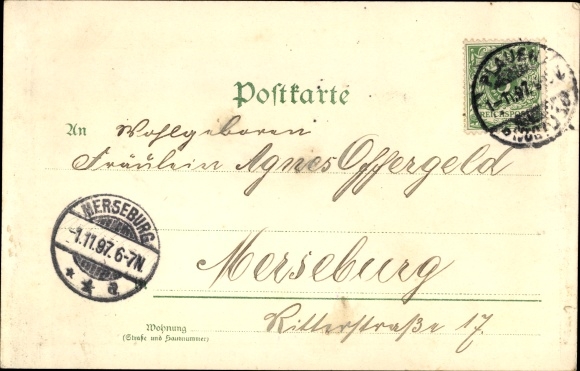 Postkarte
An Wohlgeboren
Fräulein Agnes Offergeld
Merseburg
Ritterstraße 17.
Wohnung
(Straße und Hausnummer)
MERSEBURG
-1.11.97. 6-7N.
* * a
REICHSPOST